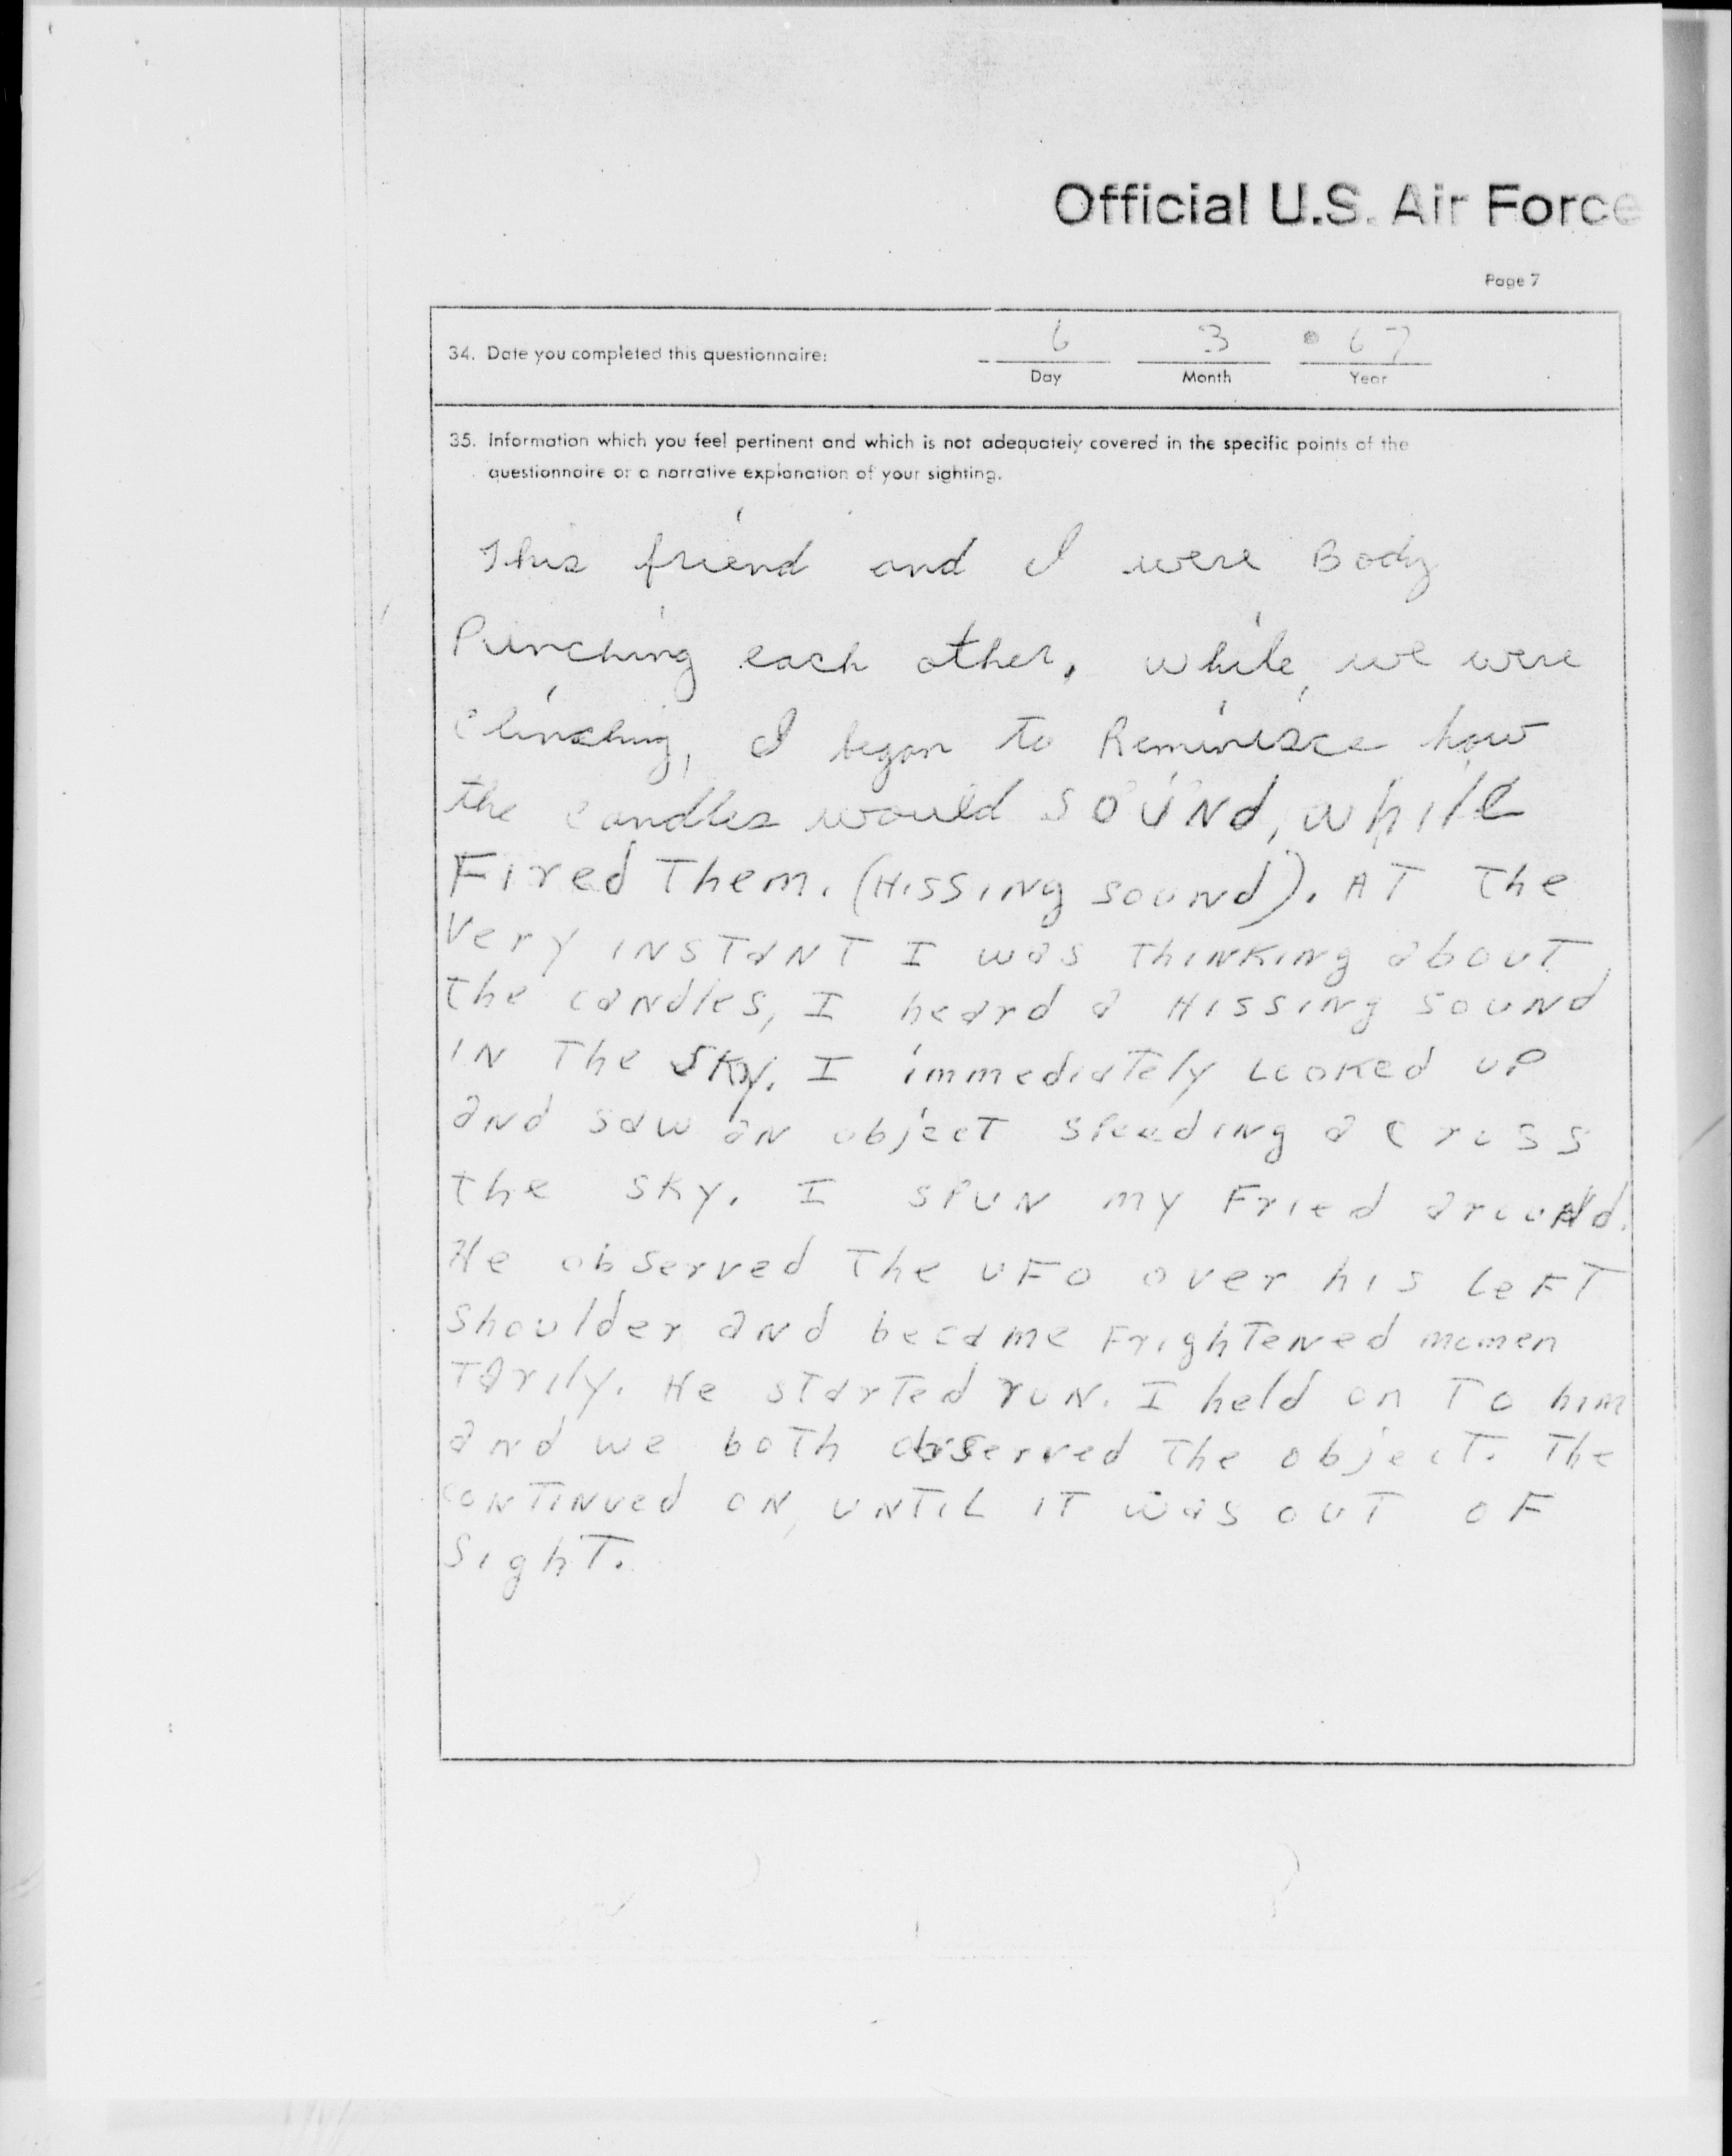 Official U.S. Air Force
Page 7
34. Date you completed this questionnaire: 6 3 67
Day Month Year
35. Information which you feel pertinent and which is not adequately covered in the specific points of the
questionnaire or a narrative explanation of your sighting.
This friend and I were Body
Punching each other, while, we were
clinching, I began to Reminisce how
the candles would SOUNd, while
Fired Them. (HISSINg sound). AT The
Very INSTANT I was ThINKINg about
The caNdles, I heard a HISSINg SOUNd
IN The SKy. I immediaTely LOOKed UP
aNd saw aN objecT SPeedINg across
The SKy. I SPUN my Fried arouNd.
He observed The UFO over his LeFT
Shoulder aNd became FrighTeNed momen
Tarily. He sTarTed ruN. I held on To him
and we boTh observed The objecT. The
coNTINued ON, UNTIL IT was OUT OF
SighT.